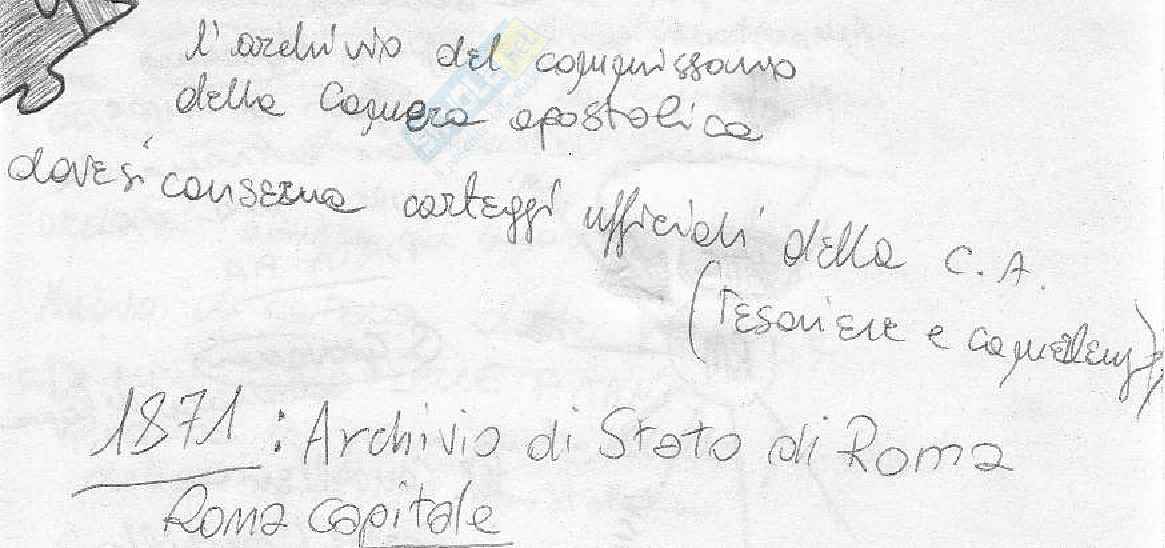 l'archivio del commissario
della Camera apostolica
dove si conserva carteggi ufficiali della C.A.
(Tesoriere e camerlengo)
1871: Archivio di Stato di Roma
Roma capitale